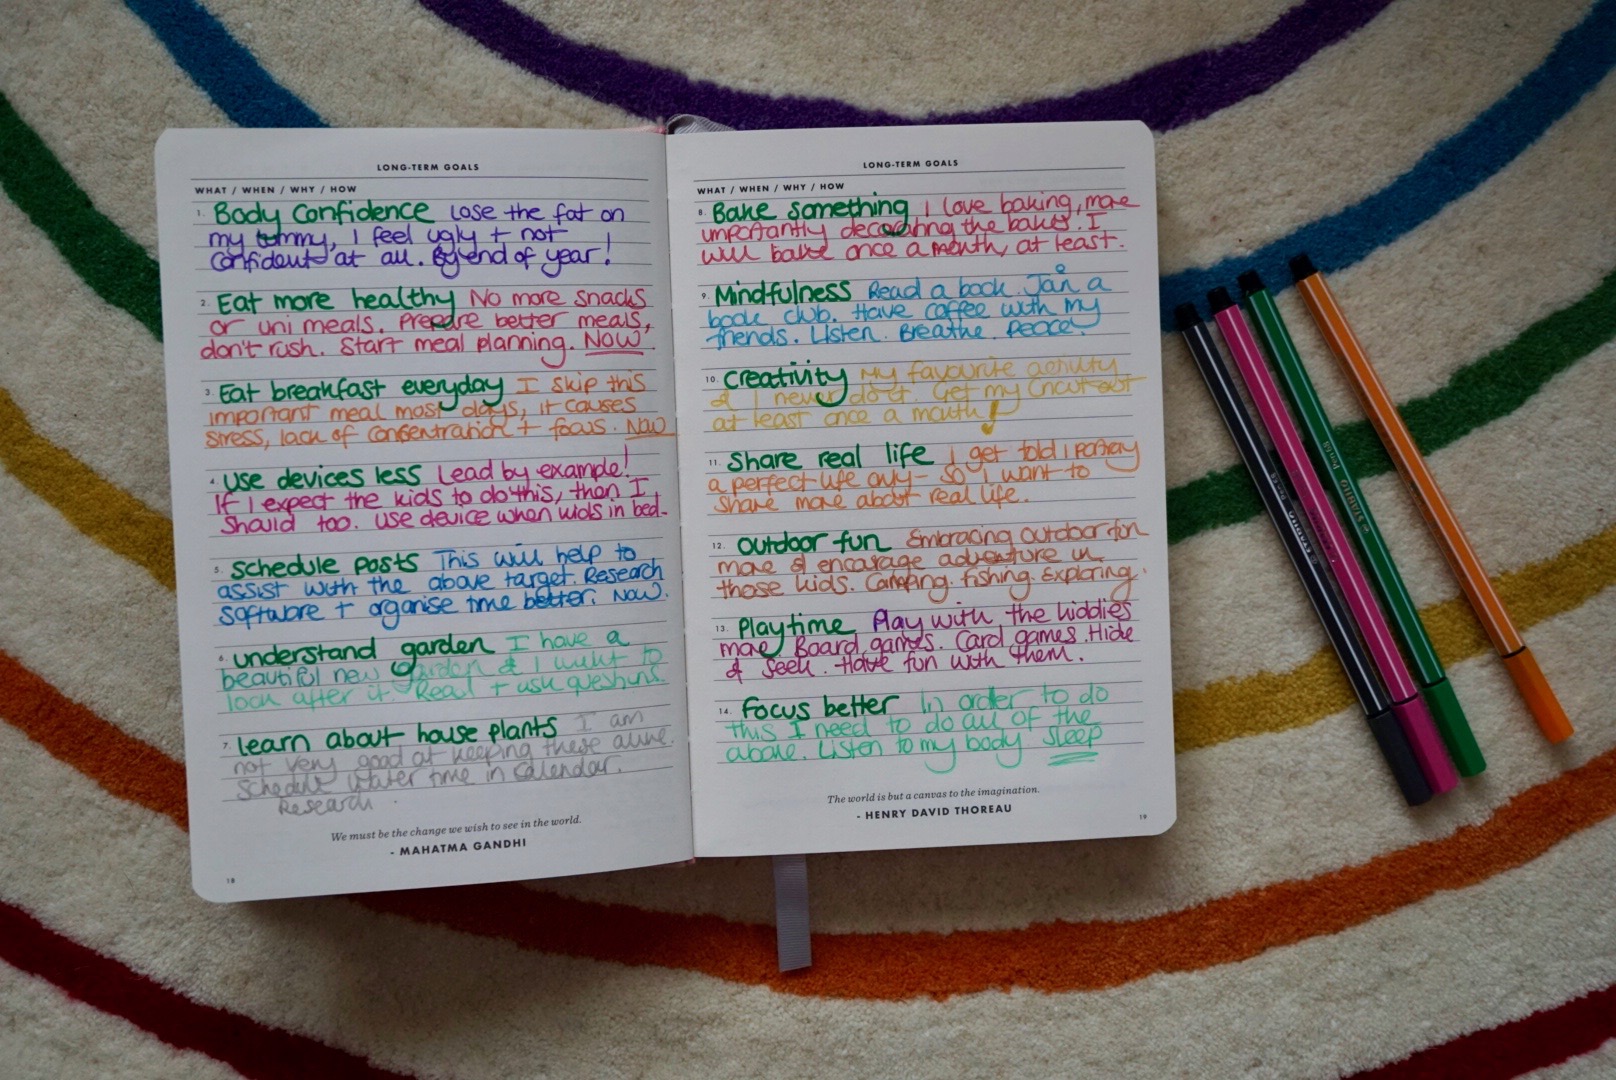 LONG-TERM GOALS
WHAT / WHEN / WHY / HOW
1. Body Confidence Lose the fat on
my tummy, I feel ugly + not
confident at all. By end of year!
2. Eat more healthy No more snacks
or uni meals. Prepare better meals,
don't rush. Start meal planning. NOW
3. Eat breakfast everyday I skip this
important meal most days, it causes
stress, lack of concentration + focus. Now
4. Use devices less Lead by example!
If I expect the kids to do this, then I
should too. Use device when kids in bed.
5. Schedule posts This will help to
assist with the above target. Research
software + organise time better. Now.
6. Understand garden I have a
beautiful new garden & I want to
look after it. Read + ask questions.
7. Learn about house plants I am
not very good at keeping these alive.
Schedule water time in calendar.
Research
We must be the change we wish to see in the world.
- MAHATMA GANDHI
18
LONG-TERM GOALS
WHAT / WHEN / WHY / HOW
8. Bake something I love baking, more
importantly decorating the bakes. I
will bake once a month, at least.
9. Mindfulness Read a book. Join a
book club. Have coffee with my
friends. Listen. Breathe. Peace.
10. Creativity My favourite activity
& I never do it. Get my Cricut out
at least once a month!
11. Share real life I get told I portray
a perfect life only - so I want to
share more about real life.
12. Outdoor fun Embracing outdoor fun
more & encourage adventure in
those kids. Camping. Fishing. Exploring.
13. Playtime Play with the kiddies
more. Board games. Card games. Hide
& Seek. Have fun with them.
14. Focus better In order to do
this I need to do all of the
above. Listen to my body sleep
The world is but a canvas to the imagination.
- HENRY DAVID THOREAU
19
STABILO
Pen 68
STABILO